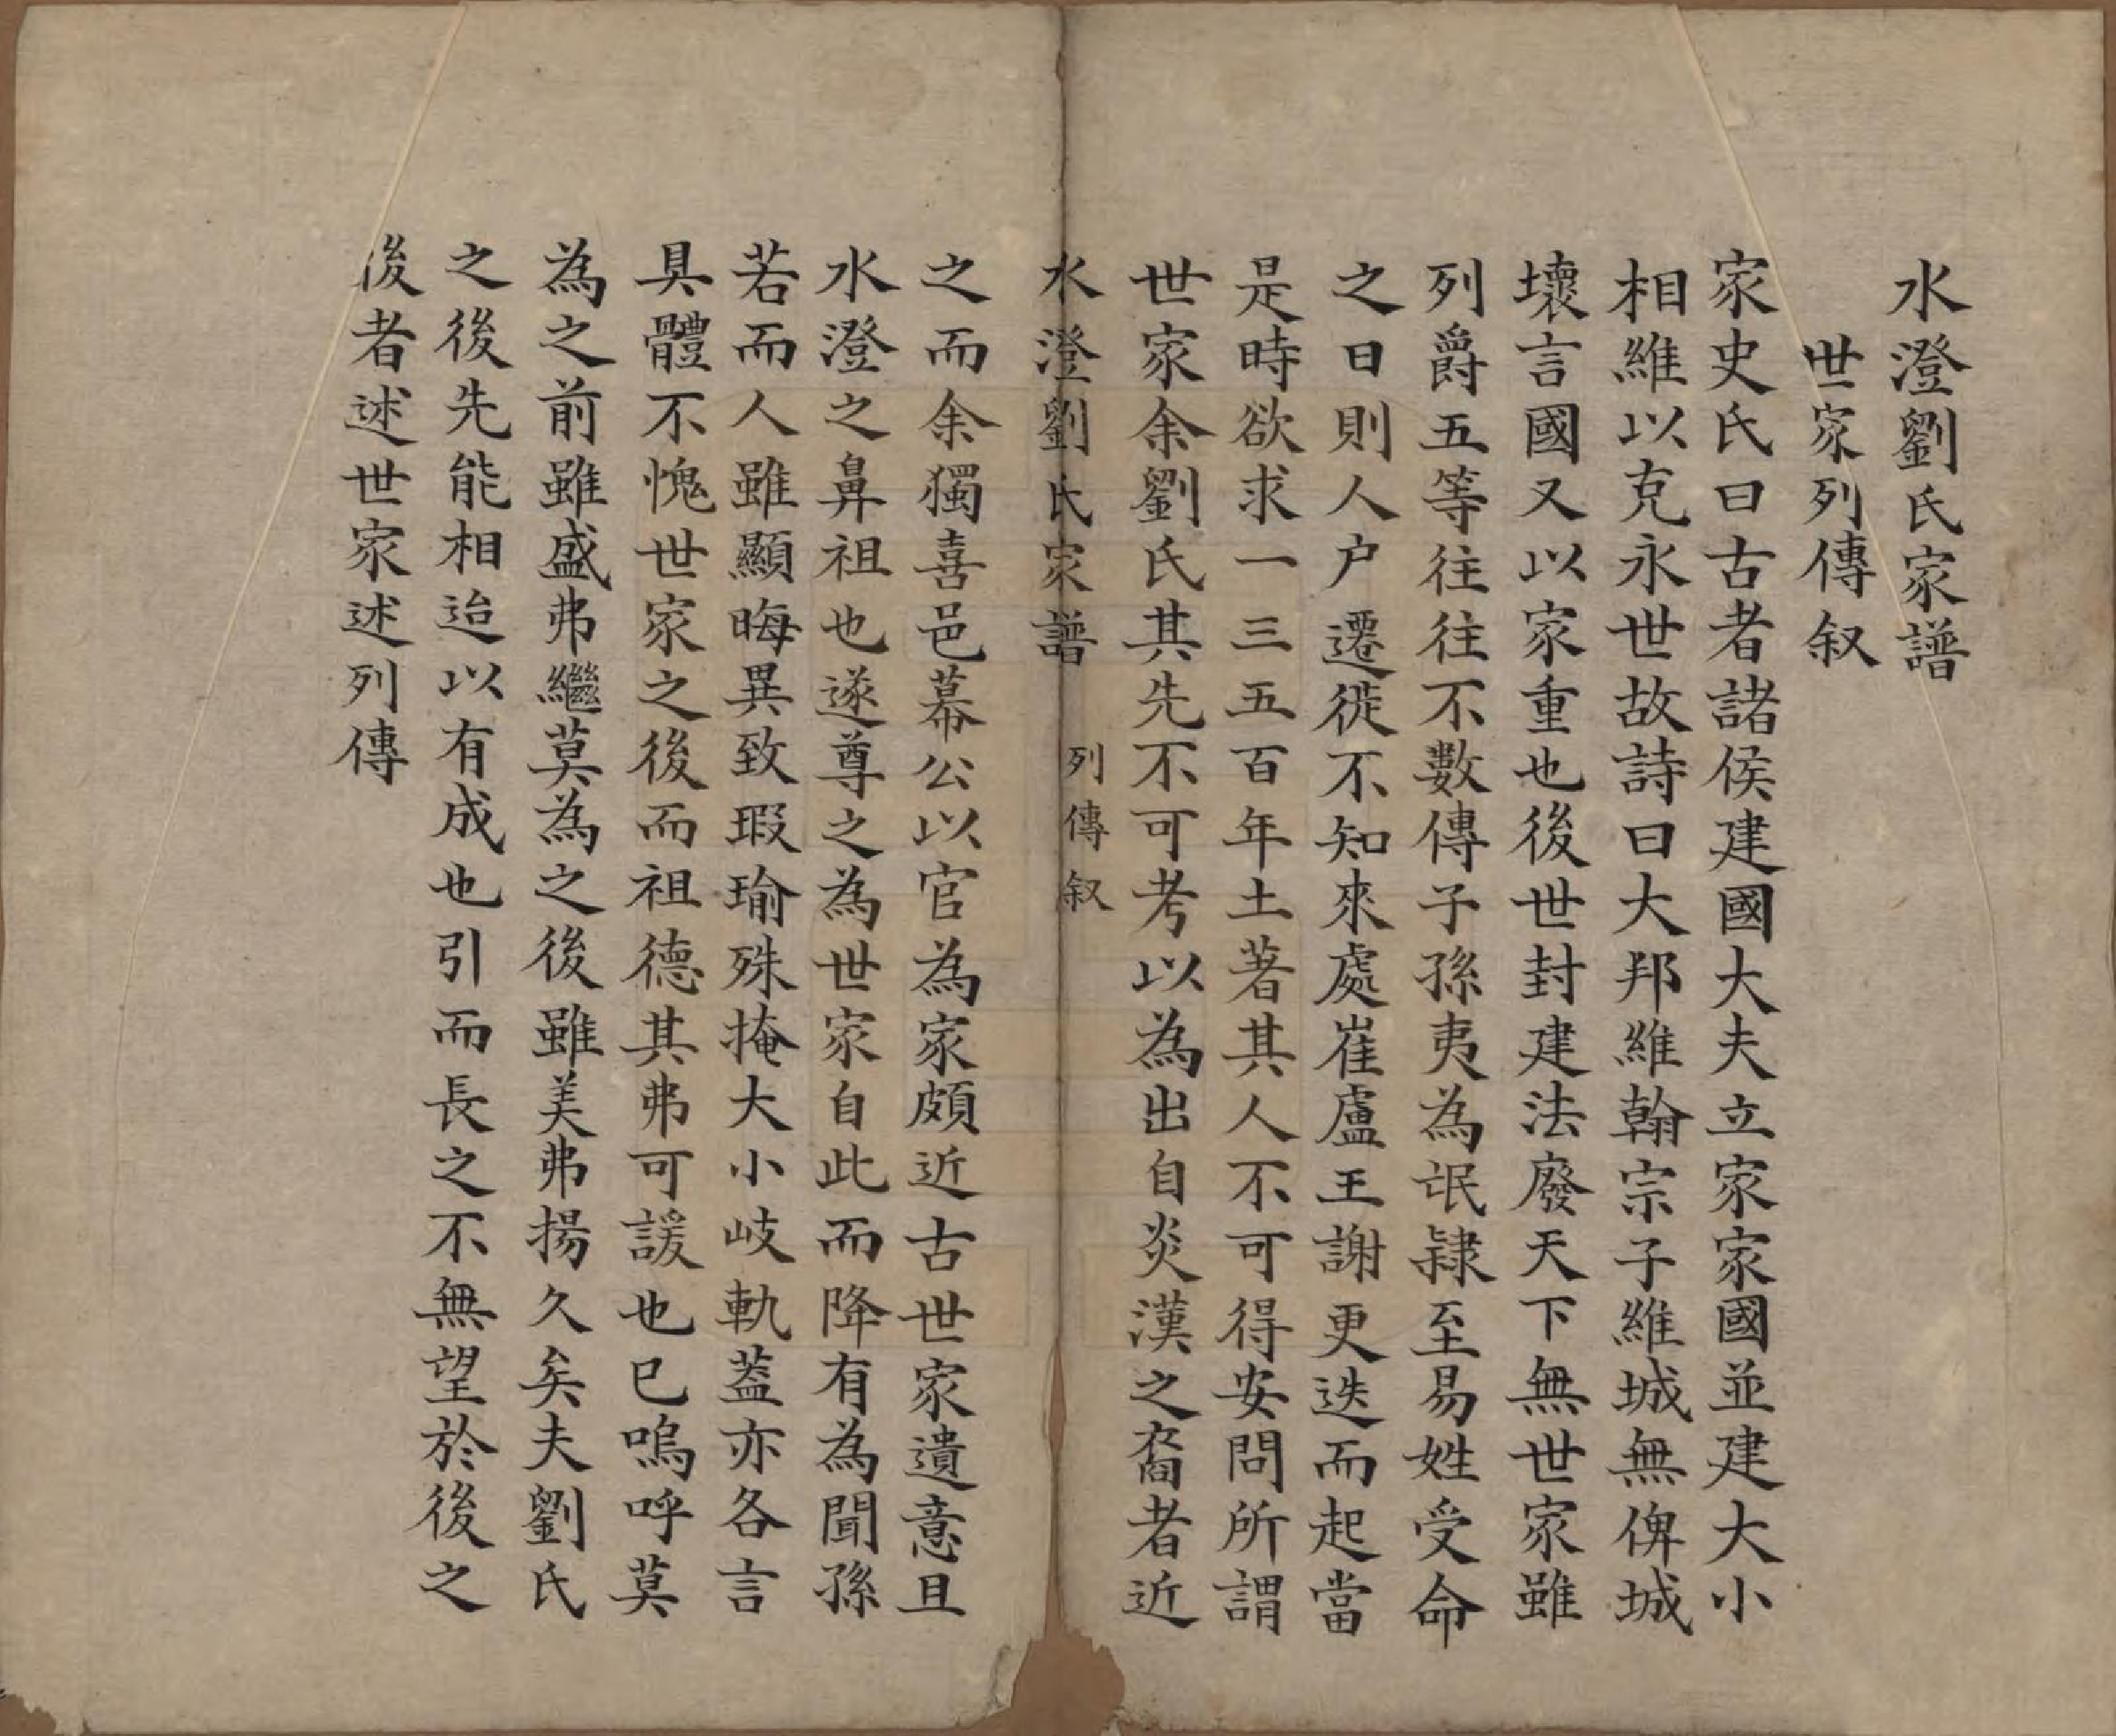 水澄劉氏家譜
世家列傳叙
家史氏曰古者諸侯建國大夫立家家國並建大小
相維以克永世故詩曰大邦維翰宗子維城無俾城
壞言國又以家重也後世封建法廢天下無世家雖
列爵五等往往不數傳子孫夷為氓隸至易姓受命
之日則人户遷徙不知來處崔盧王謝更迭而起當
是時欲求一三五百年土著其人不可得安問所謂
世家余劉氏其先不可考以為出自炎漢之裔者近
水澄劉氏家譜 列傳叙
之而余獨喜邑幕公以官為家頗近古世家遺意且
水澄之鼻祖也遂尊之為世家自此而降有為聞孫
若而人雖顯晦異致瑕瑜殊掩大小岐軌葢亦各言
具體不愧世家之後而祖德其弗可諼也已嗚呼莫
為之前雖盛弗繼莫為之後雖美弗揚久矣夫劉氏
之後先能相迨以有成也引而長之不無望於後之
後者述世家述列傳